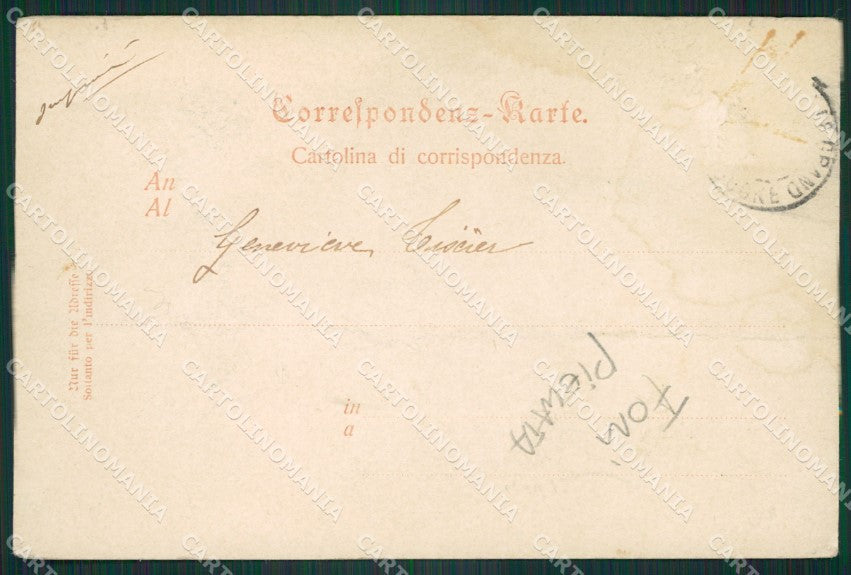 Correspondenz-Karte.
Cartolina di corrispondenza.
An
Al
Geneviève
Nur für die Adresse
Soltanto per l'indirizzo
in
a
FORI
PIEGATA
CARTOLINOMANIA